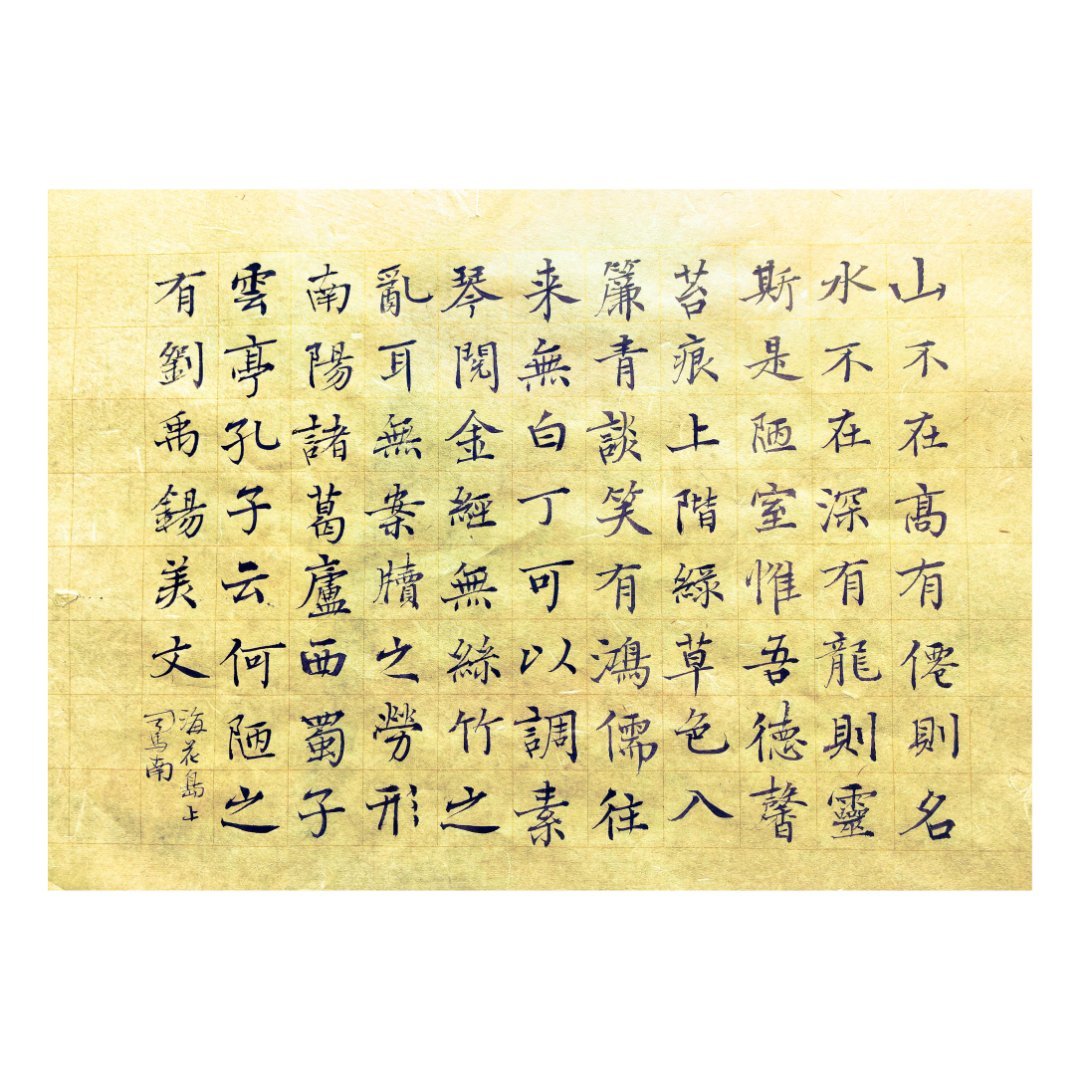 山不在髙有僊則名
水不在深有龍則靈
斯是陋室惟吾德馨
苔痕上階綠草色入
簾青談笑有鴻儒往
来無白丁可以調素
琴閱金經無絲竹之
亂耳無案牘之勞形
南陽諸葛廬西蜀子
雲亭孔子云何陋之
有劉禹錫美文
海花島上
司馬南